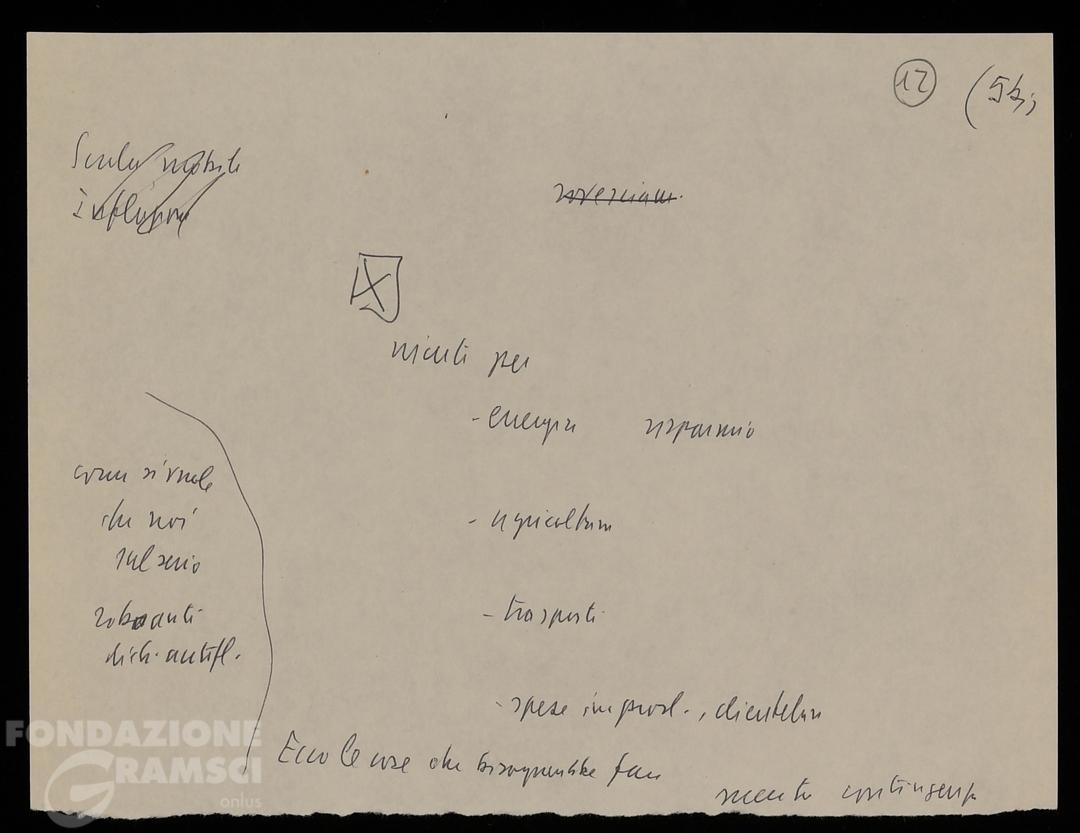 12 (5bis
Scala mobile
Inflazione
rovesciam.
niente per
- energia risparmio
- agricoltura
- trasporti
- spese improd., clientelari
come si vuole
che noi
sul serio
roboanti
dich. antifl.
Ecco le cose che bisognerebbe fare
scatto contingenza
FONDAZIONE
GRAMSCI
onlus